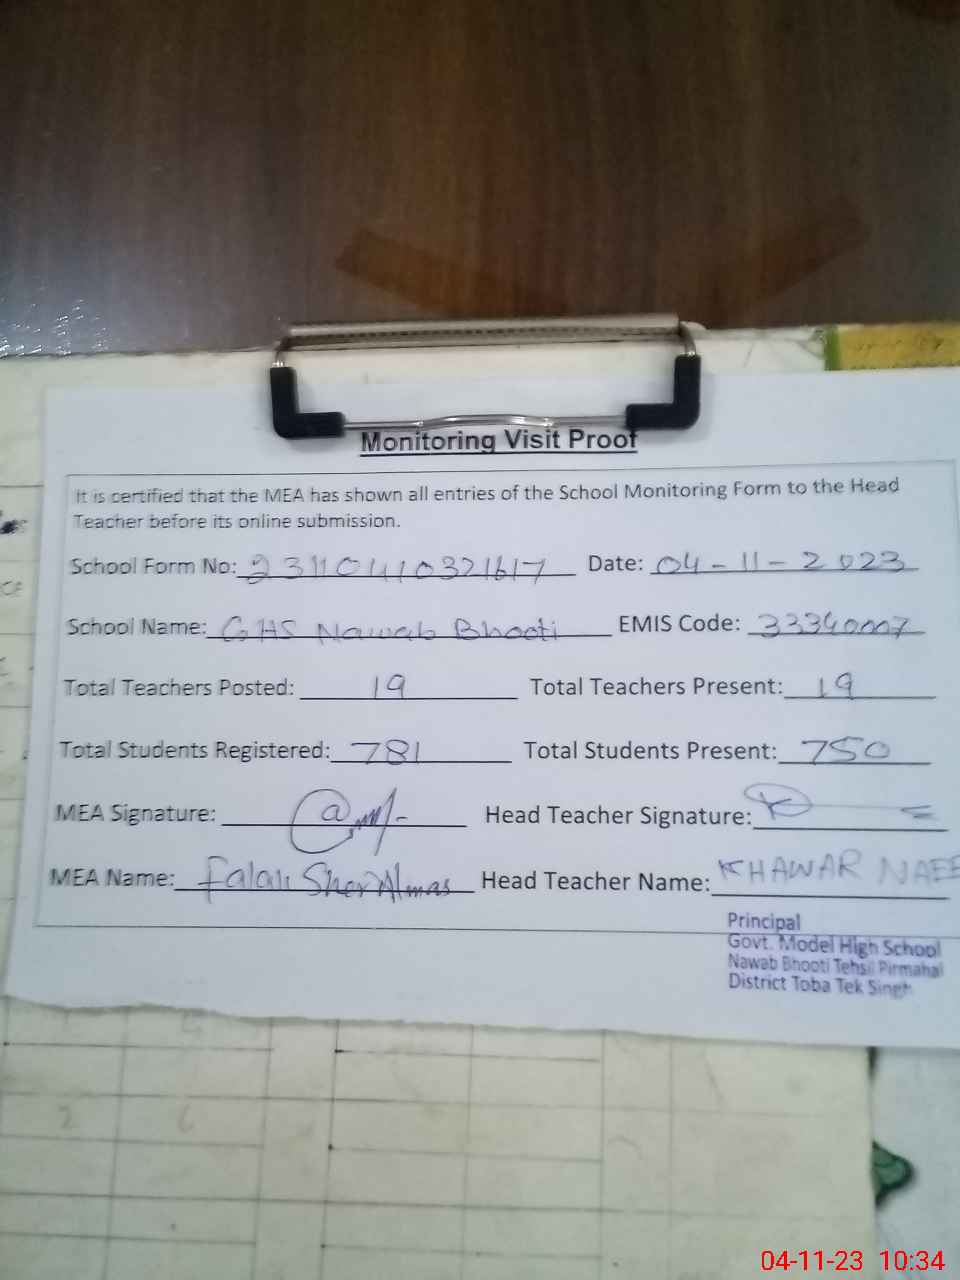 Monitoring Visit Proof
It is certified that the MEA has shown all entries of the School Monitoring Form to the Head
Teacher before its online submission.
School Form No: 231104110321617 Date: 04-11-2023
School Name: GHS Nawab Bhooti EMIS Code: 33340007
Total Teachers Posted: 19 Total Teachers Present: 19
Total Students Registered: 781 Total Students Present: 750
MEA Signature: Head Teacher Signature:
MEA Name: Falak Sher Almas Head Teacher Name: KHAWAR NAEE
Principal
Govt. Model High School
Nawab Bhooti Tehsil Pirmahal
District Toba Tek Singh
2 6
04-11-23 10:34